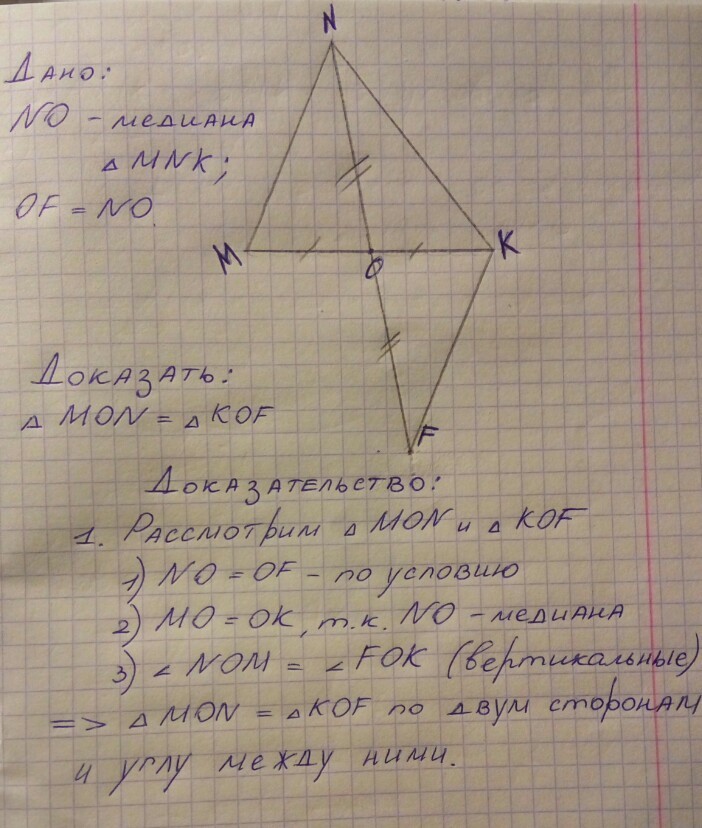 N
Дано:
NO - медиана
△ MNK;
OF = NO.
M
O
K
Доказать:
△ MON = △ KOF
F
Доказательство:
1. Рассмотрим △ MON и △ KOF
1) NO = OF - по условию
2) MO = OK, т.к. NO - медиана
3) ∠ NOM = ∠ FOK (вертикальные)
=> △ MON = △ KOF по двум сторонам
и углу между ними.